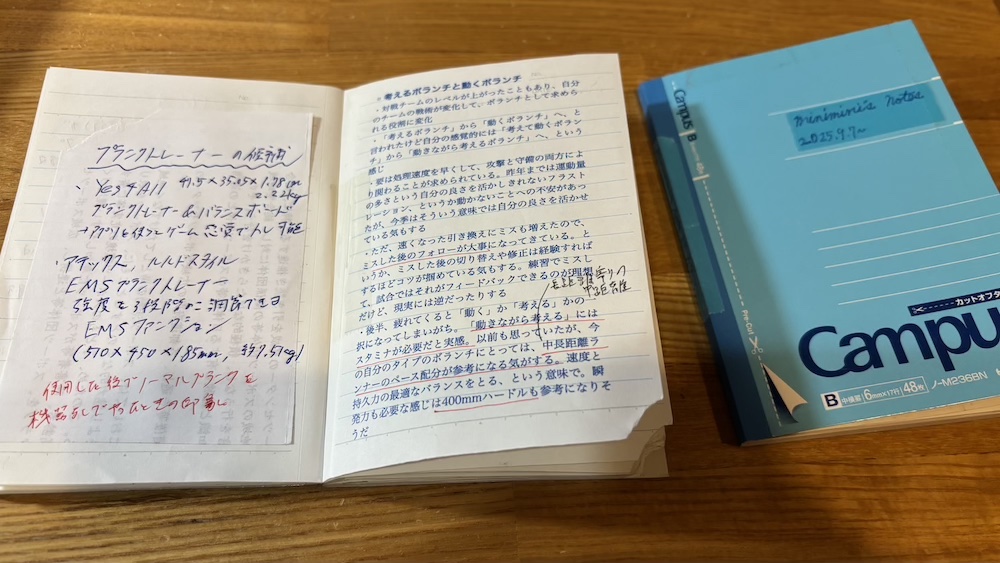 プランクトレーナーの候補
・Yes4All 41.5×35.05×1.78cm
2.22kg
プランクトレーナー&バランスボード
→アプリを使ってゲーム感覚でトレ可能
・アテックス, ルルドスタイル
EMSプランクトレーナー
強度を3段階に調節できる
EMSファンクション
(510×450×185mm, 約1.5kg)
使用した後でノーマルプランクを
機器なしでやったときの印象
考えるボランチと動くボランチ
・対戦チームのレベルが上がったこともあり、自分
のチームの戦術が変化して、ボランチとして求めら
れる役割に変化
・「考えるボランチ」から「動くボランチ」へ、と
言われたけど自分の感覚的には「考えて動くボラン
チ」から「動きながら考えるボランチ」へ、という
感じ
・要は処理速度を早くして、攻撃と守備の両方によ
り関わることが求められている。昨年までは運動量
の多さという自分の良さを活かしきれないフラスト
レーション、というか動かないことへの不安があっ
たが、今季はそういう意味では自分の良さを活かせ
ている気もする
・ただ、速くなった引き換えにミスも増えたので、
ミスした後のフォローが大事になってきている。と
いうか、ミスした後の切り替えや修正は経験すれば
するほどコツが掴めている気もする。練習でミスし
て、試合ではそれがフィードバックできるのが理想
だけど、現実には逆だったりする
長距離寄りの
中距離
・後半、疲れてくると「動く」か「考える」かの
択になってしまいがち。「動きながら考える」には
スタミナが必要だと実感。以前も思っていたが、今
の自分のタイプのボランチにとっては、中長距離ラ
ンナーのペース配分が参考になる気がする。速度と
持久力の最適なバランスをとる、という意味で。瞬
発力も必要な感じは400mmハードルも参考になりそ
うだ
Campus B
minimini's Notes
2025.9.7~
Pre-Cut
カットオフタ
Campu
B 中横罫 6mm×17行 48枚 ノ-M236BN